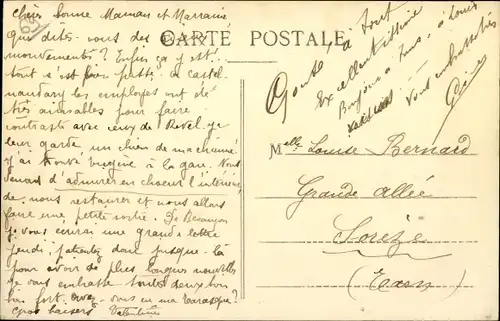 CARTE POSTALE
Chère Bonne Maman et Marraine
que dites-vous des
mouvements? Enfin ça y est!
tout s'est bien passé; à Castel-
naudary les employés ont été
très aimables pour faire
contraste avec ceux de Revel. Je
leur garde un chien de
j'ai trouvé à la gare. Nous
venons d'admirer en choeur l'intérieur
de nous restaurer et nous allons
faire une petite sortie. De Besançon
je vous écrirai une grande lettre
jeudi; patientez donc jusque-là
pour avoir de plus longues nouvelles
Je vous embrasse toutes deux
fort. avez-vous eu ma Tarasque?
gros baisers Valentine
à tout
Excellent
Bonjour à tous, à Louise
vous embrasse
Melle Louise Bernard
Grande allée
Sorèze
(Tarn)